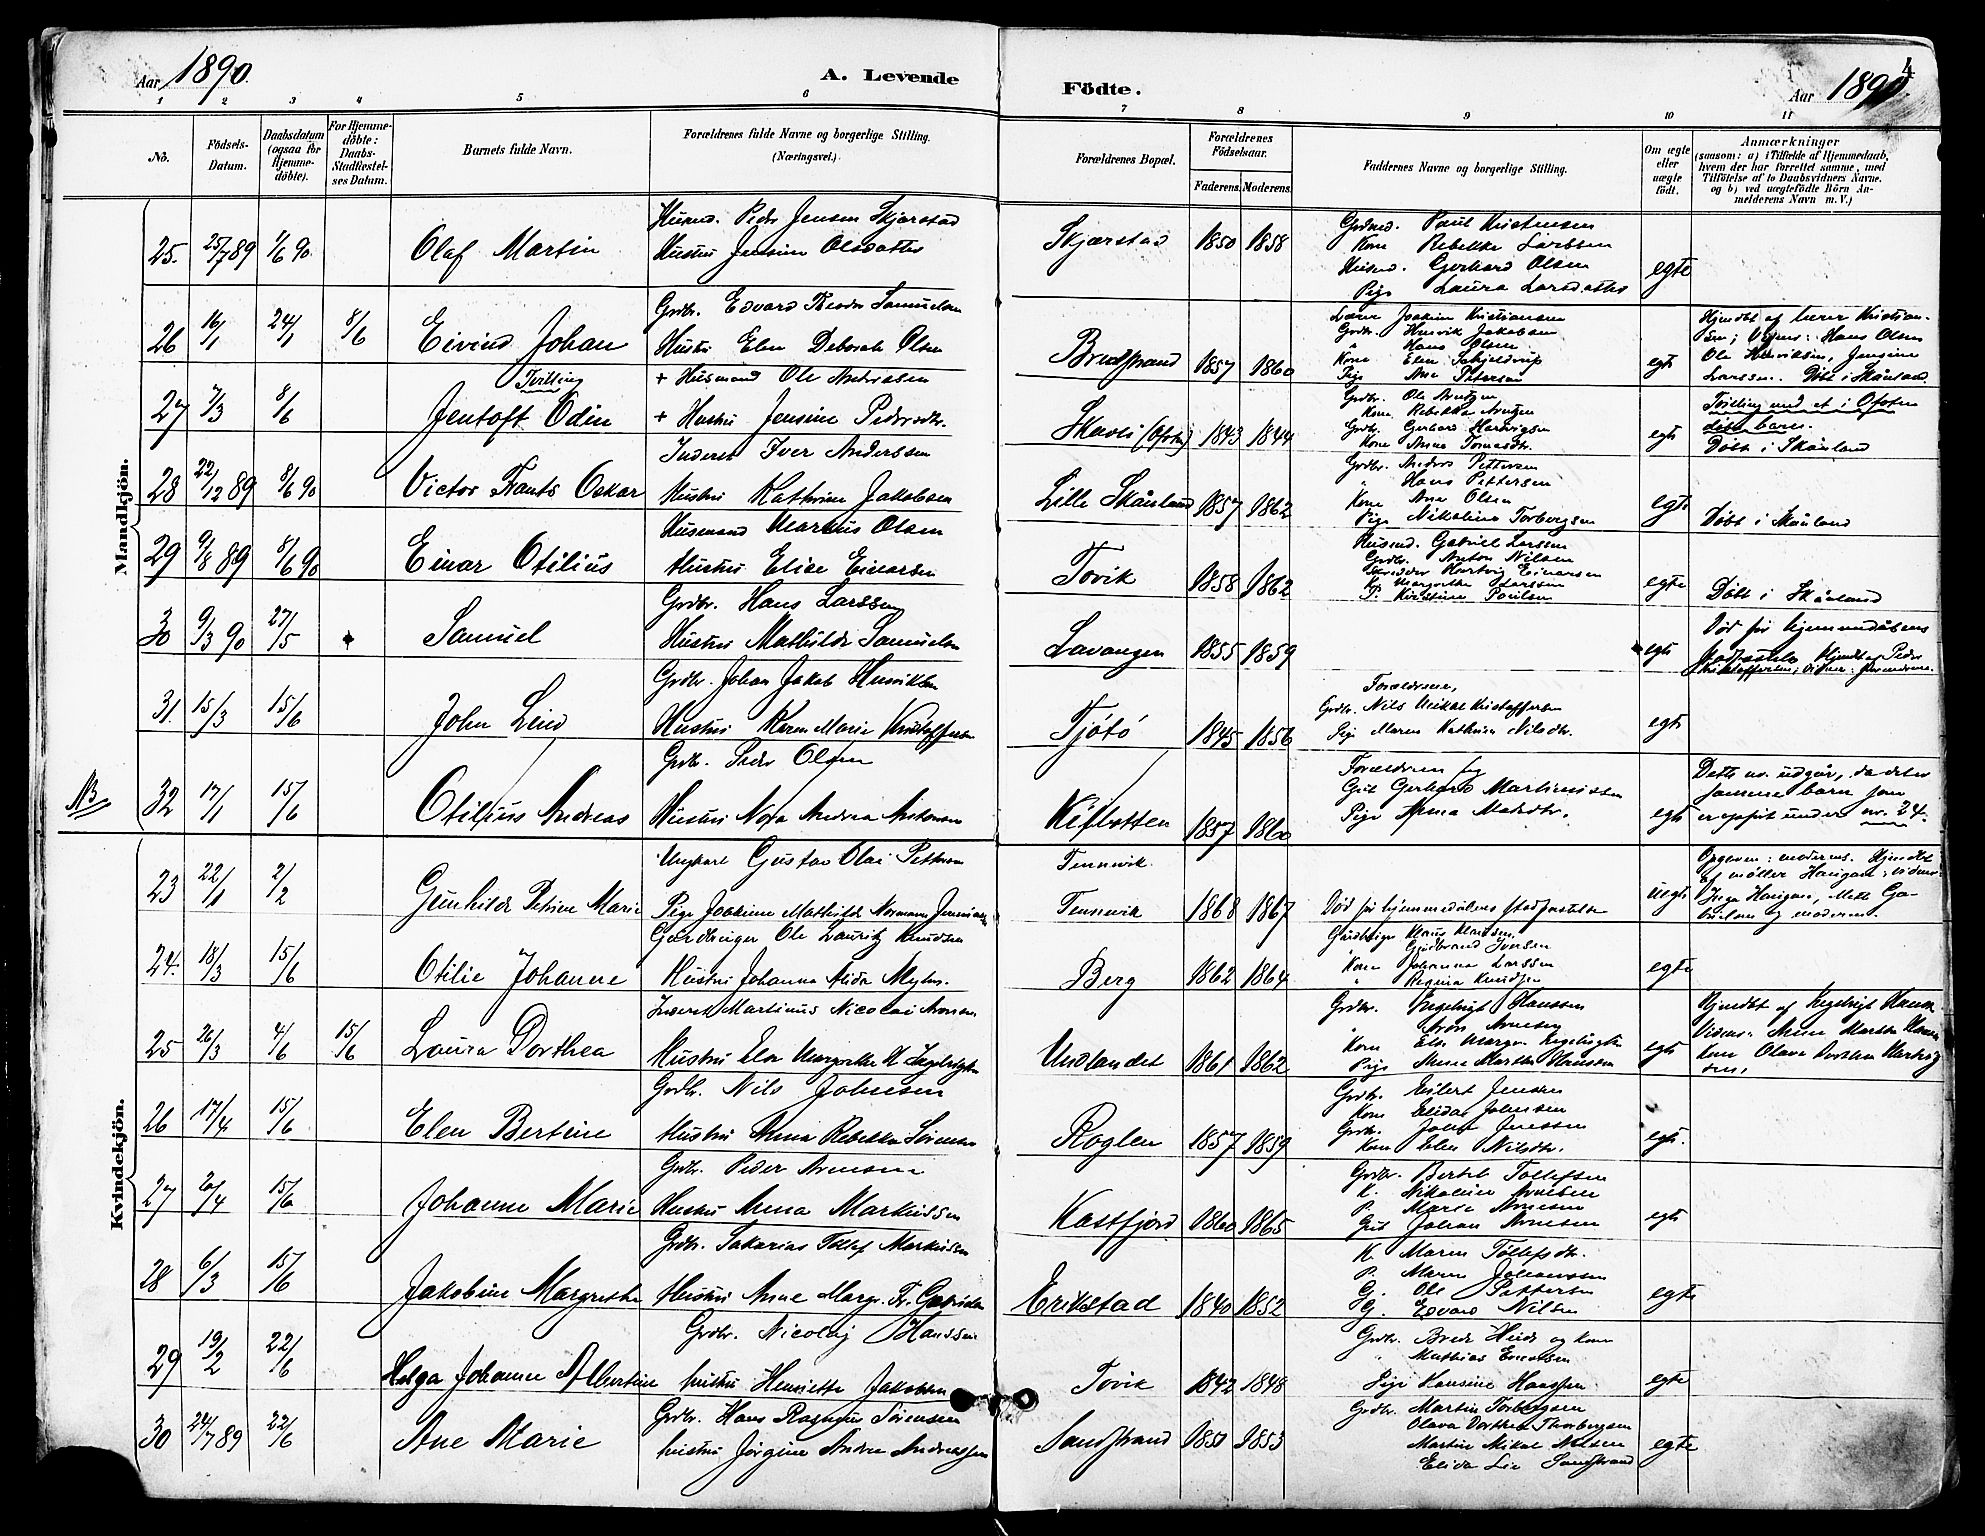 Aar 1890.
A. Levende
Födte.
Aar 1890.
4
1 2 3 4 5 6 7 8 9 10 11
No.
Födsels-
Datum.
Daabsdatum
(ogsaa for
Hjemme-
döbte).
For Hjemme-
döbte:
Daabs-
Stadfæstel-
ses Datum.
Barnets fulde Navn.
Forældrenes fulde Navne og borgerlige Stilling.
(Næringsvei.)
Forældrenes Bopæl.
Forældrenes
Födselsaar.
Faderens. Moderens.
Faddernes Navne og borgerlige Stilling.
Om ægte
eller
uægte
födt.
Anmærkninger
(saasom: a) i Tilfælde af Hjemmedaab,
hvem der har forrettet samme, med
Tilföielse af to Daabsvidners Navne.
og b) ved uægtefödte Börn An-
melderens Navn m. V.)
Mandkjön.
25. 25/7 89 1/6 90 Olaf Martin
Husmd. Peder Jensen Skjærstad
Hustru Jensine Olsdatter
Skjærstad 1850 1858
Grdmd. Paul Kristensen
Kone Rebekka Larssen
Husmd. Gerhard Olsen
Pige Laura Larsdatter
egte
26 16/1 24/1 8/6 Eivind Johan
Grdbr. Edvard Teodor Samuelsen
Hustru Elen Deborah Olsen
Breidstrand 1857 1860
Lærer Joakim Kristiansen
Grdbr. Henrik Jakobsen
" Hans Olsen
Kone Elen Schjeldrup
Pige Ane Petersen
egte
Hjemdøbt af lærer Kristian-
sen; Vidner: Hans Olsen
Ole Henriksen, Jensine
Larssen. Døbt i Skånland.
27 7/3 8/6 Tvilling
Jentoft Odin
+ Husmand Ole Andreasen
+ Hustru Jensine Pedersdtr.
Skavli (Ofoten) 1843 1844
Grdbr. Ole Arntzen
Kone Rebekka Arntzen
Grdbr. Gerhard Hartvigsen
Kone Anna Tomasdtr.
egte
Tvilling med et i Ofoten
døbt barn.
Døbt i Skånland
28 22/12 89 8/6 90 Victor Frants Oskar
Inderst Iver Anderssen
Hustru Kathrine Jakobsen
Lille Skånland 1857 1862
Grdbr. Anders Pettersen
" Hans Pettersen
Kone Ane Olsen
Pige Nikoline Torbergsen
egte
Døbt i Skånland
29 9/8 89 8/6 90 Einar Otilius
Husmand Markus Olsen
Hustru Elise Einarsen
Tovik 1858 1862
Husmd. Gabriel Larssen
Grdbr. Anton Nilsen
Skrædder Hartvig Einarsen
K. Margrethe Larssen
P. Kirstine Poulsen
egte
Døbt i Skånland
30 9/3 90 27/5 Samuel
Grdbr. Hans Larssen
Hustru Mathilde Samuelsen
Lavangen 1855 1859
egte
Død før hjemmedåbens
stadfæstelse Hjemdbt af Peder
Kristoffersen; vidner: forældrene.
31. 15/3 15/6 John Leind
Grdbr. Johan Jakob Henriksen
Hustru Karen Marie Kristoffersen
Tjøtø 1845 1856
Forældrene,
Grdbr. Nils Mikal Kristoffersen
Pige Maren Kathrine Nilsdtr.
egte
NB
32 17/1 15/6 Otilius Andreas
Grdbr. Peder Olsen
Hustru Nora Andrea Antonsen
Kjøflotten 1857 1860
Forældrene
Gut Gerhard Martinussen
Pige Anna Madsdtr.
egte
Dette nr. udgår, da det er
samme barn som
er opført under nr. 24.
Kvindekjön.
23 22/1 2/2 Gunhilde Petrine Marie
Ungkarl Gustav Olai Petterson
Pige Joakime Mathilde Normann Jenssen
Tennevik
Tennevik 1868 1867
Død før hjemmedåbens stadfæstelse
uegte
Opgiven: moderens. Hjemdbt
af møller Hanigan; vidner:
Inga Hanigan, Mette Ga-
brielsen og moderen.
24. 18/3 15/6 Otilie Johanne
Gårdbruger Ole Lauritz Knudsen
Hustru Johanna Alida Meyer.
Berg 1862 1864
Gårdbruger Klaus Klausen
" Guldbrand Iversen
Kone Johanna Larssen
" Regina Knudsen
egte
25 26/3 4/6 15/6 Laura Dorthea
Inderst Martinus Nicolai Aronsen
Hustru Elen Margrethe K. Ingebrigtsen
Undlandet 1861 1862
Grdbr. Ingebrigt Hanssen
" Aron Arnesen
Kone Elen Margr. Ingebrigtsen
Pige Anne Martha Hanssen
egte
Hjemdbt af Ingebrigt Hansen
Vidner: Anne Martha Hansen
kone Olava Dorthea Hartvig-
sen.
26 17/4 15/6 Elen Bertine
Grdbr. Nils Johnsen
Hustru Anna Rebekka Sörensen
Roglen 1857 1859
Grdbr. Eilert Jensen
Kone Elida Johnsen
Grdbr. John Jenssen
Kone Elen Nilsdtr.
egte.
27 20/4 15/6 Johanne Marie
Grdbr. Peder Arnesen
Hustru Anna Markussen
Kastfjord 1860 1865
Grdbr. Bertel Tollefsen
K. Nikoline Arnesen
P. Marie Arnesen
Gut Johan Arnesen
egte
28 6/3 15/6 Jakobine Margrethe
Grdbr. Sakarias Tollef Markussen
Hustru Anne Margr. Fr. Gabrielsen
Erikstad 1840 1852
K. Maren Tollefsdtr.
P. Maren Johanssen
G. Ole Pettersen
G. Edvard Nilsen
egte
29 19/2 22/6 Helga Johanne Albertine
Grdbr. Nicolaj Hanssen
hustru Henriette Jakobsen
Tovik 1842 1848
Grdbr. Brede Heide og kone
" Mathias Ericksen
Pige Hansine Hanssen
egte
30 24/7 89 22/6 Ane Marie
Grdbr. Hans Rasmus Sörensen
hustru Jørgine Andrea Andreassen
Sandstrand 1850 1853
Grdbr. Martin Torbergsen
Olava Dorthea Thorbergsen
Martin Mikal Nilsen
Elida Lie Sandstrand
egte